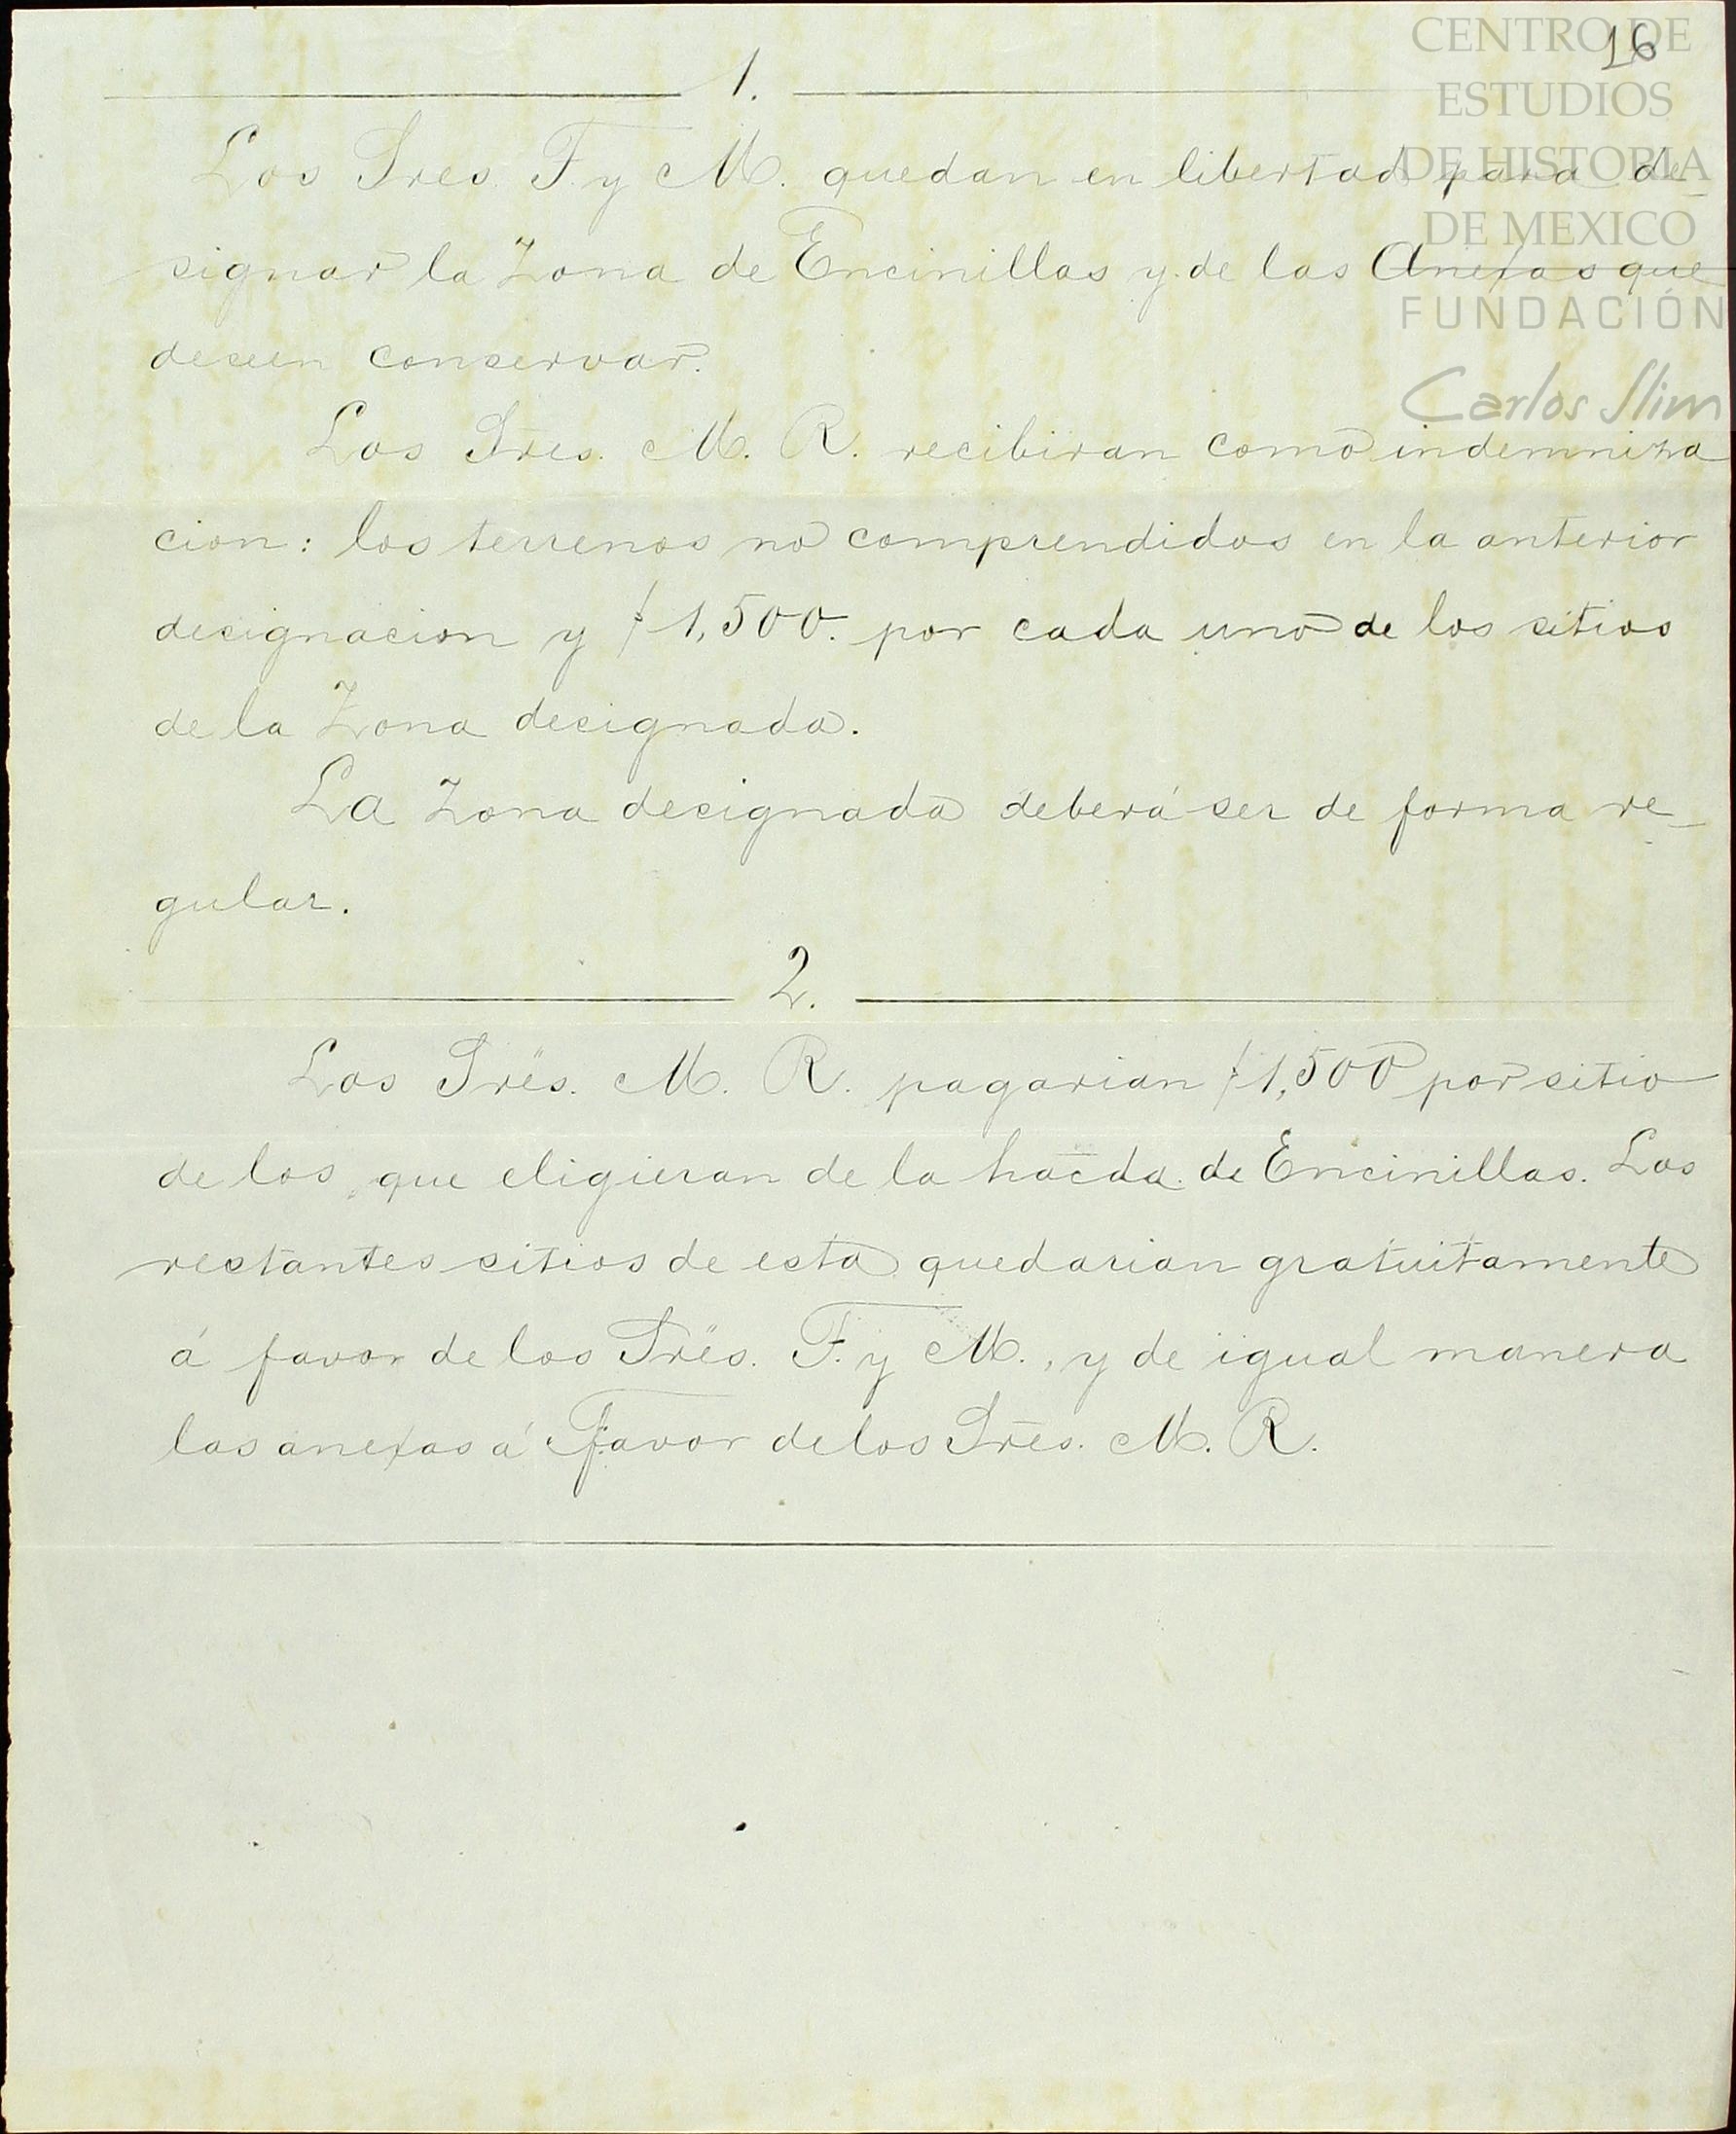 16
CENTRO DE
ESTUDIOS
DE HISTORIA
DE MEXICO
FUNDACIÓN
Carlos Slim
1.
Los Sres. F. y M. quedan en libertad para de-
signar la Zona de Encinillas y de las Anexas que
deseen conservar.
Los Sres. M. R. recibiran como indemniza
cion: los terrenos no comprendidos en la anterior
designacion y $1,500. por cada uno de los sitios
de la Zona designada.
La Zona designada deberá ser de forma re-
gular.
2.
Los Sres. M. R. pagarian $1,500 por sitio
de los que eligieran de la hacda. de Encinillas. Los
restantes sitios de esta quedarian gratuitamente
á favor de los Sres. F. y M., y de igual manera
las anexas á favor de los Sres. M. R.